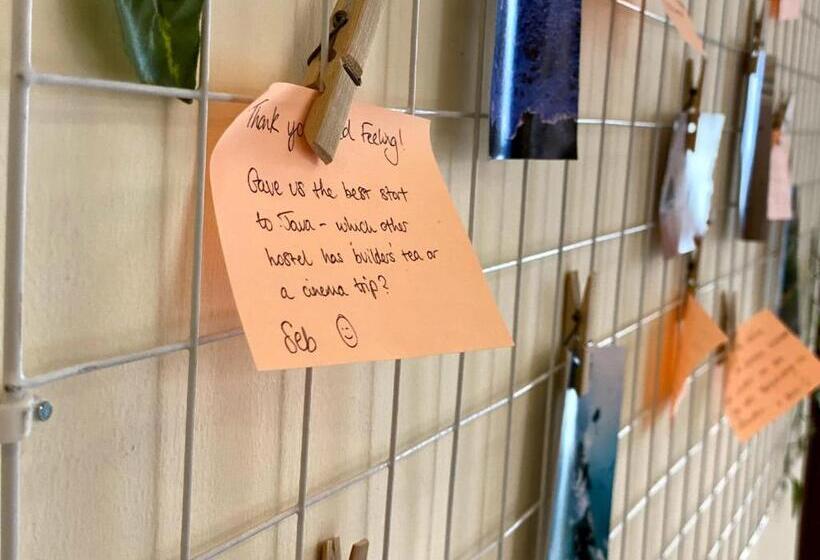 Thank yo d Feeling!
Gave us the best start
to Java - which other
hostel has 'builders' tea or
a cinema trip?
Seb ☺